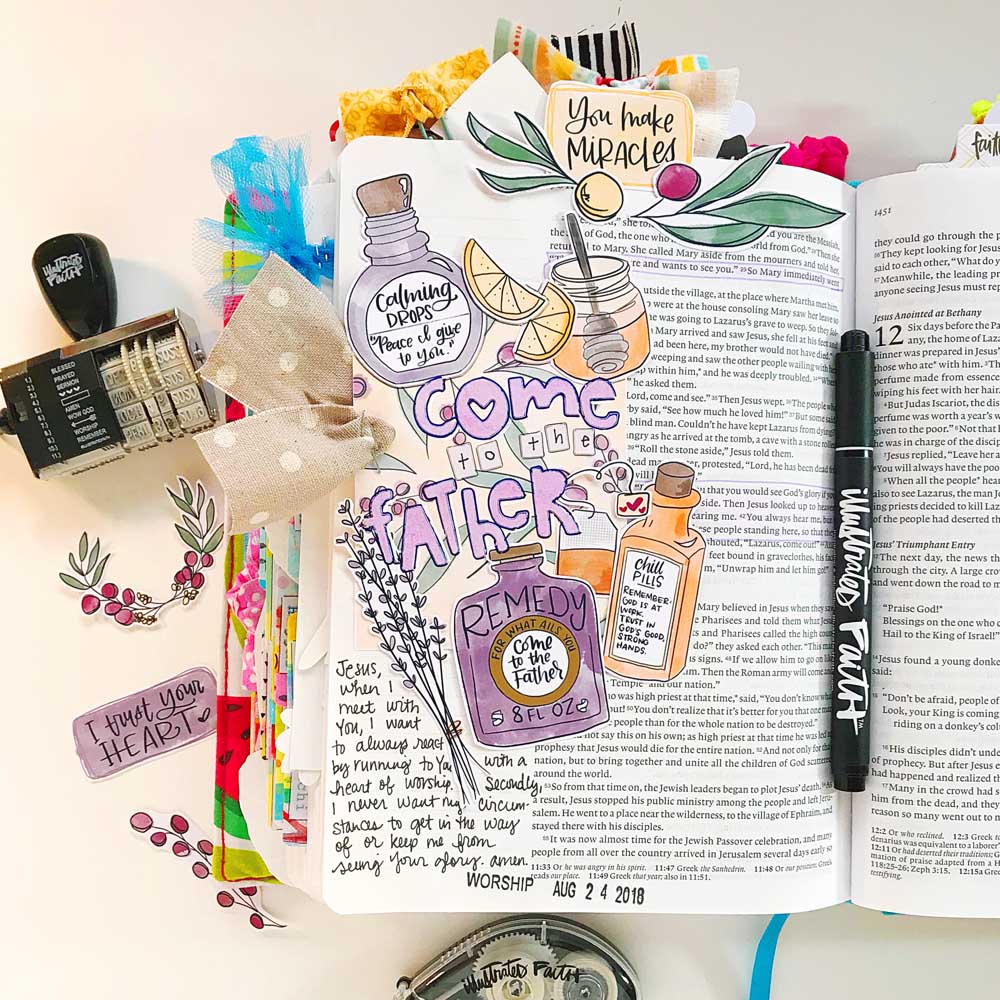 You make
MIRACLES
faith
Calming
DROPS
"Peace I give
to you."
COME
to the
FATHER
chill
PILLS
REMEMBER:
GOD IS AT
WORK.
TRUST IN
GOD'S GOOD,
STRONG
HANDS.
REMEDY
FOR WHAT AILS YOU
Come
to the
Father
8 FL OZ
Jesus,
when I
meet with
You, I want
to always react
by running to You with a
heart of worship. Secondly,
I never want my circum-
stances to get in the way
of or keep me from
seeing Your glory. amen.
WORSHIP AUG 24 2018
I trust your
HEART
illustrated
FAITH
BLESSED
PRAYED
SERMON
AMEN
WOW GOD
WORSHIP
REMEMBER
illustrated FAITH
illustrated FAITH
she to
you are the Messiah,
of God, the one who
world from God." Then she
returned to Mary. She called Mary aside from the mourners and told her,
re and wants to see you." 29 So Mary immediately went
outside the village, at the place where Martha met him.
were at the house consoling Mary saw her leave so
was going to Lazarus's grave to weep. So they
Mary arrived and saw Jesus, she fell at his feet
had been here, my brother would not have died."
weeping and saw the other people wailing with
up within him, and he was deeply troubled.
he asked them.
Lord, come and see." 35 Then Jesus wept. 36 The people who
by said, "See how much he loved him!" 37 But some said
blind man. Couldn't he have kept Lazarus from dying
angry as he arrived at the tomb, a cave with a stone rolled
39 "Roll the stone aside," Jesus told them.
dead man's sister, protested, "Lord, he has been dead
you that you would see God's glory if you
side. Then Jesus looked up to heaven
hearing me. 42 You always hear me, but
these people standing here, so that they
shouted, "Lazarus, come out!"
feet bound in graveclothes, his face
"Unwrap him and let him go!"
Mary believed in Jesus when they saw
Pharisees and told them what Jesus
and Pharisees called the high council
do?" they asked each other. "This man
signs. 48 If we allow him to go on like
him. Then the Roman army will come and
Temple and our nation."
who was high priest at that time, said, "You don't know what
50 You don't realize that it's better for you that one man
people than for the whole nation to be destroyed."
not say this on his own; as high priest at that time he was led to
prophesy that Jesus would die for the entire nation. 52 And not only for that
nation, but to bring together and unite all the children of God scattered
around the world.
53 So from that time on, the Jewish leaders began to plot Jesus' death. 54 As
a result, Jesus stopped his public ministry among the people and left Jeru-
salem. He went to a place near the wilderness, to the village of Ephraim, and
stayed there with his disciples.
55 It was now almost time for the Jewish Passover celebration, and many
people from all over the country arrived in Jerusalem several days early so
11:33 Or he was angry in his spirit. 11:47 Greek the Sanhedrin. 11:48 Or our position; Greek
reads our place. 11:49 Greek that year; also in 11:51.
1451
they could go through the
56 They kept looking for Jesus
said to each other, "What do
57 Meanwhile, the leading
anyone seeing Jesus must
Jesus Anointed at Bethany
12 Six days before the
any, the home of
dinner was prepared in Jesus'
those who ate* with him.
perfume made from essence
wiping his feet with her hair.
4 But Judas Iscariot, the
perfume was worth a year's
given to the poor." 6 Not that
he was in charge of the
7 Jesus replied, "Leave her
8 You will always have the
9 When all the people* hear
also to see Lazarus, the man
ing priests decided to kill
of the people had deserted
Jesus' Triumphant Entry
12 The next day, the news
through the city. A large
and went down the road to
"Praise God!*
Blessings on the one who
Hail to the King of Israel!"
14 Jesus found a young donkey
said:
15 "Don't be afraid, people of
Look, your King is coming,
riding on a donkey's
16 His disciples didn't
of prophecy. But after Jesus
had happened and realized
17 Many in the crowd had
him from the dead, and they
reason so many went out to
12:2 Or who reclined. 12:3 Greek
denarius was equivalent to a laborer's
12:11 Or had deserted their traditions; Greek
mation of praise adapted from a
118:25-26; Zeph 3:15. 12:15a Greek
testifying.